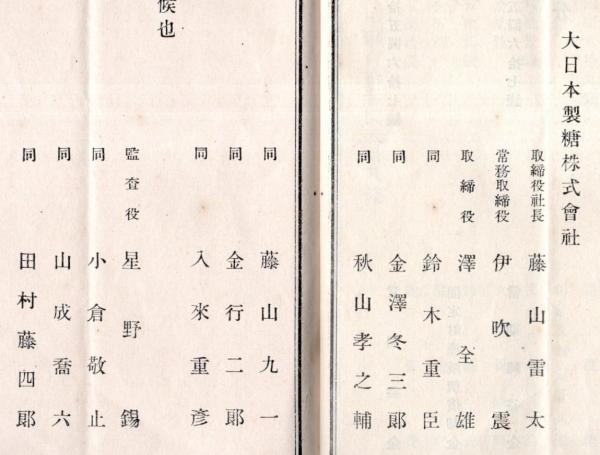 大日本製糖株式會社
取締役社長 藤山雷太
常務取締役 伊吹震
取締役 澤全雄
同 鈴木重臣
同 金澤冬三郎
同 秋山孝之輔
同 藤山九一
同 金行二郎
同 入來重彥
監査役 星野錫
同 小倉敬止
同 山成喬六
同 田村藤四郎
候也